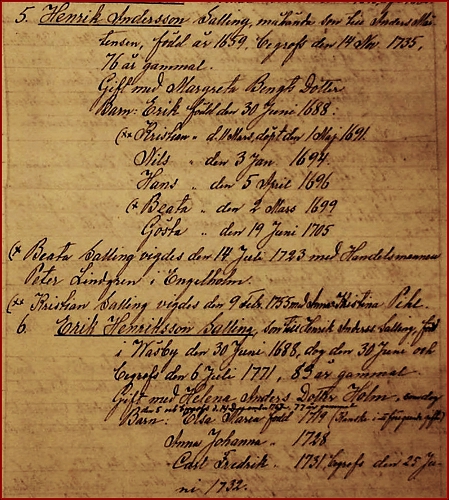 5. Henrik Andersson Salling, son till Anders Mår
tensson, född år 1659, begrofs den 14 Nov. 1735,
76 år gammal.
Gift med Margreta Bengts Dotter
Barn: Erik född den 30 Juni 1688.
(** Kristian " d. 11 Mars, döpt den 1 Maj 1691
Nils " den 3 Jan 1694
Hans " den 5 April 1696
(* Beata " den 2 Mars 1699
Gösta " den 19 Juni 1705
(* Beata Salling vigdes den 14 Juli 1723 med Handelsmannen
Peter Lindgren i Engelholm.
(** Kristian Salling vigdes den 9 Feb. 1755 med Anna Kristina Pihl.
6. Erik Henriksson Salling, son till Henrik Anderss Salling, född
i Wåsby den 30 Juni 1688, dog den 30 Juni och
begrofs den 6 Juli 1771, 83 år gammal.
Gift med Helena Anders Dotter Holm, som dog
den 5 och begrofs d. 14 1767, 77 år gammal
Barn: Elsa Maria född 1719
Anna Johanna " 1728
Carl Fredrik " 1731, begrofs den 25 Ju-
ni 1732.